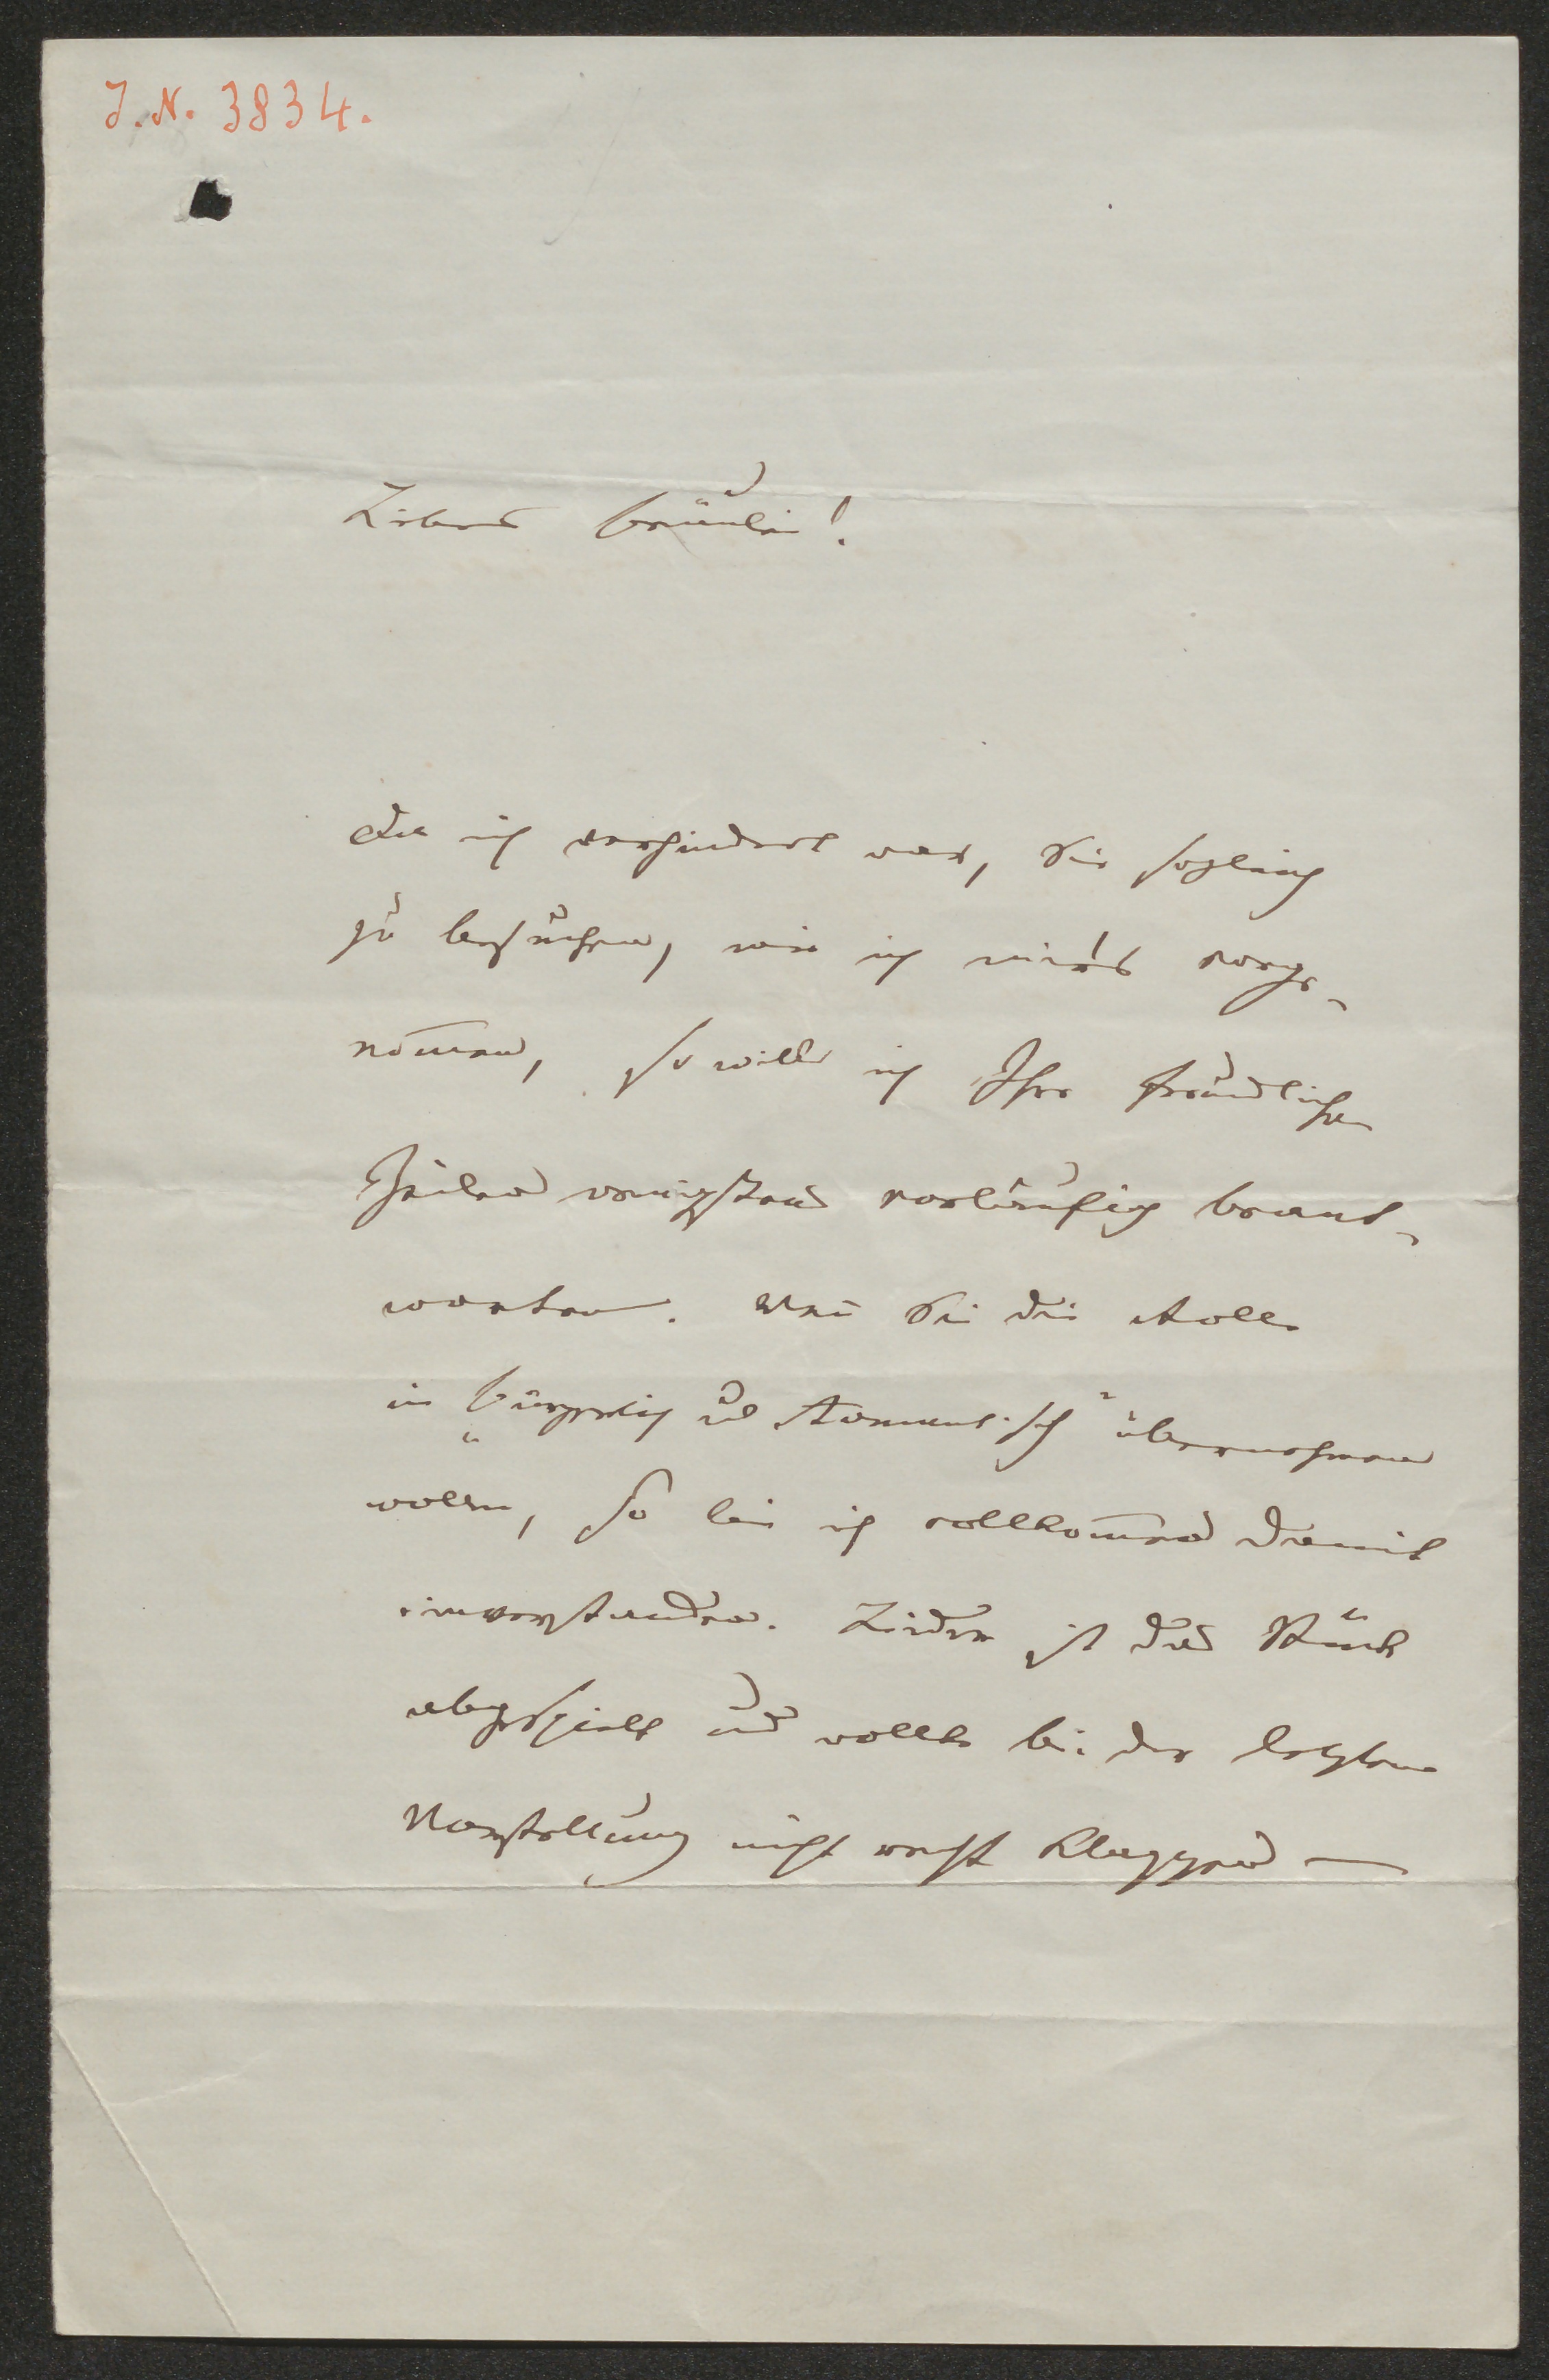 J. N. 3834.
Liebes Fräulein!
Da ich verhindert war, Sie sogleich
zu besuchen, wie ich mir's vorge-
nom̅en, so will ich Ihre freundlichen
Zeilen wenigstens vorläufig beant-
worten. Wen̅ Sie die Rolle
in „Bürgerlich und Romantisch“ übernehmen
wollen, so bin ich vollkom̅en damit
einverstanden. Leider ist das Stück
abgespielt und wollte bei der letzten
Vorstellung nicht recht klappen —